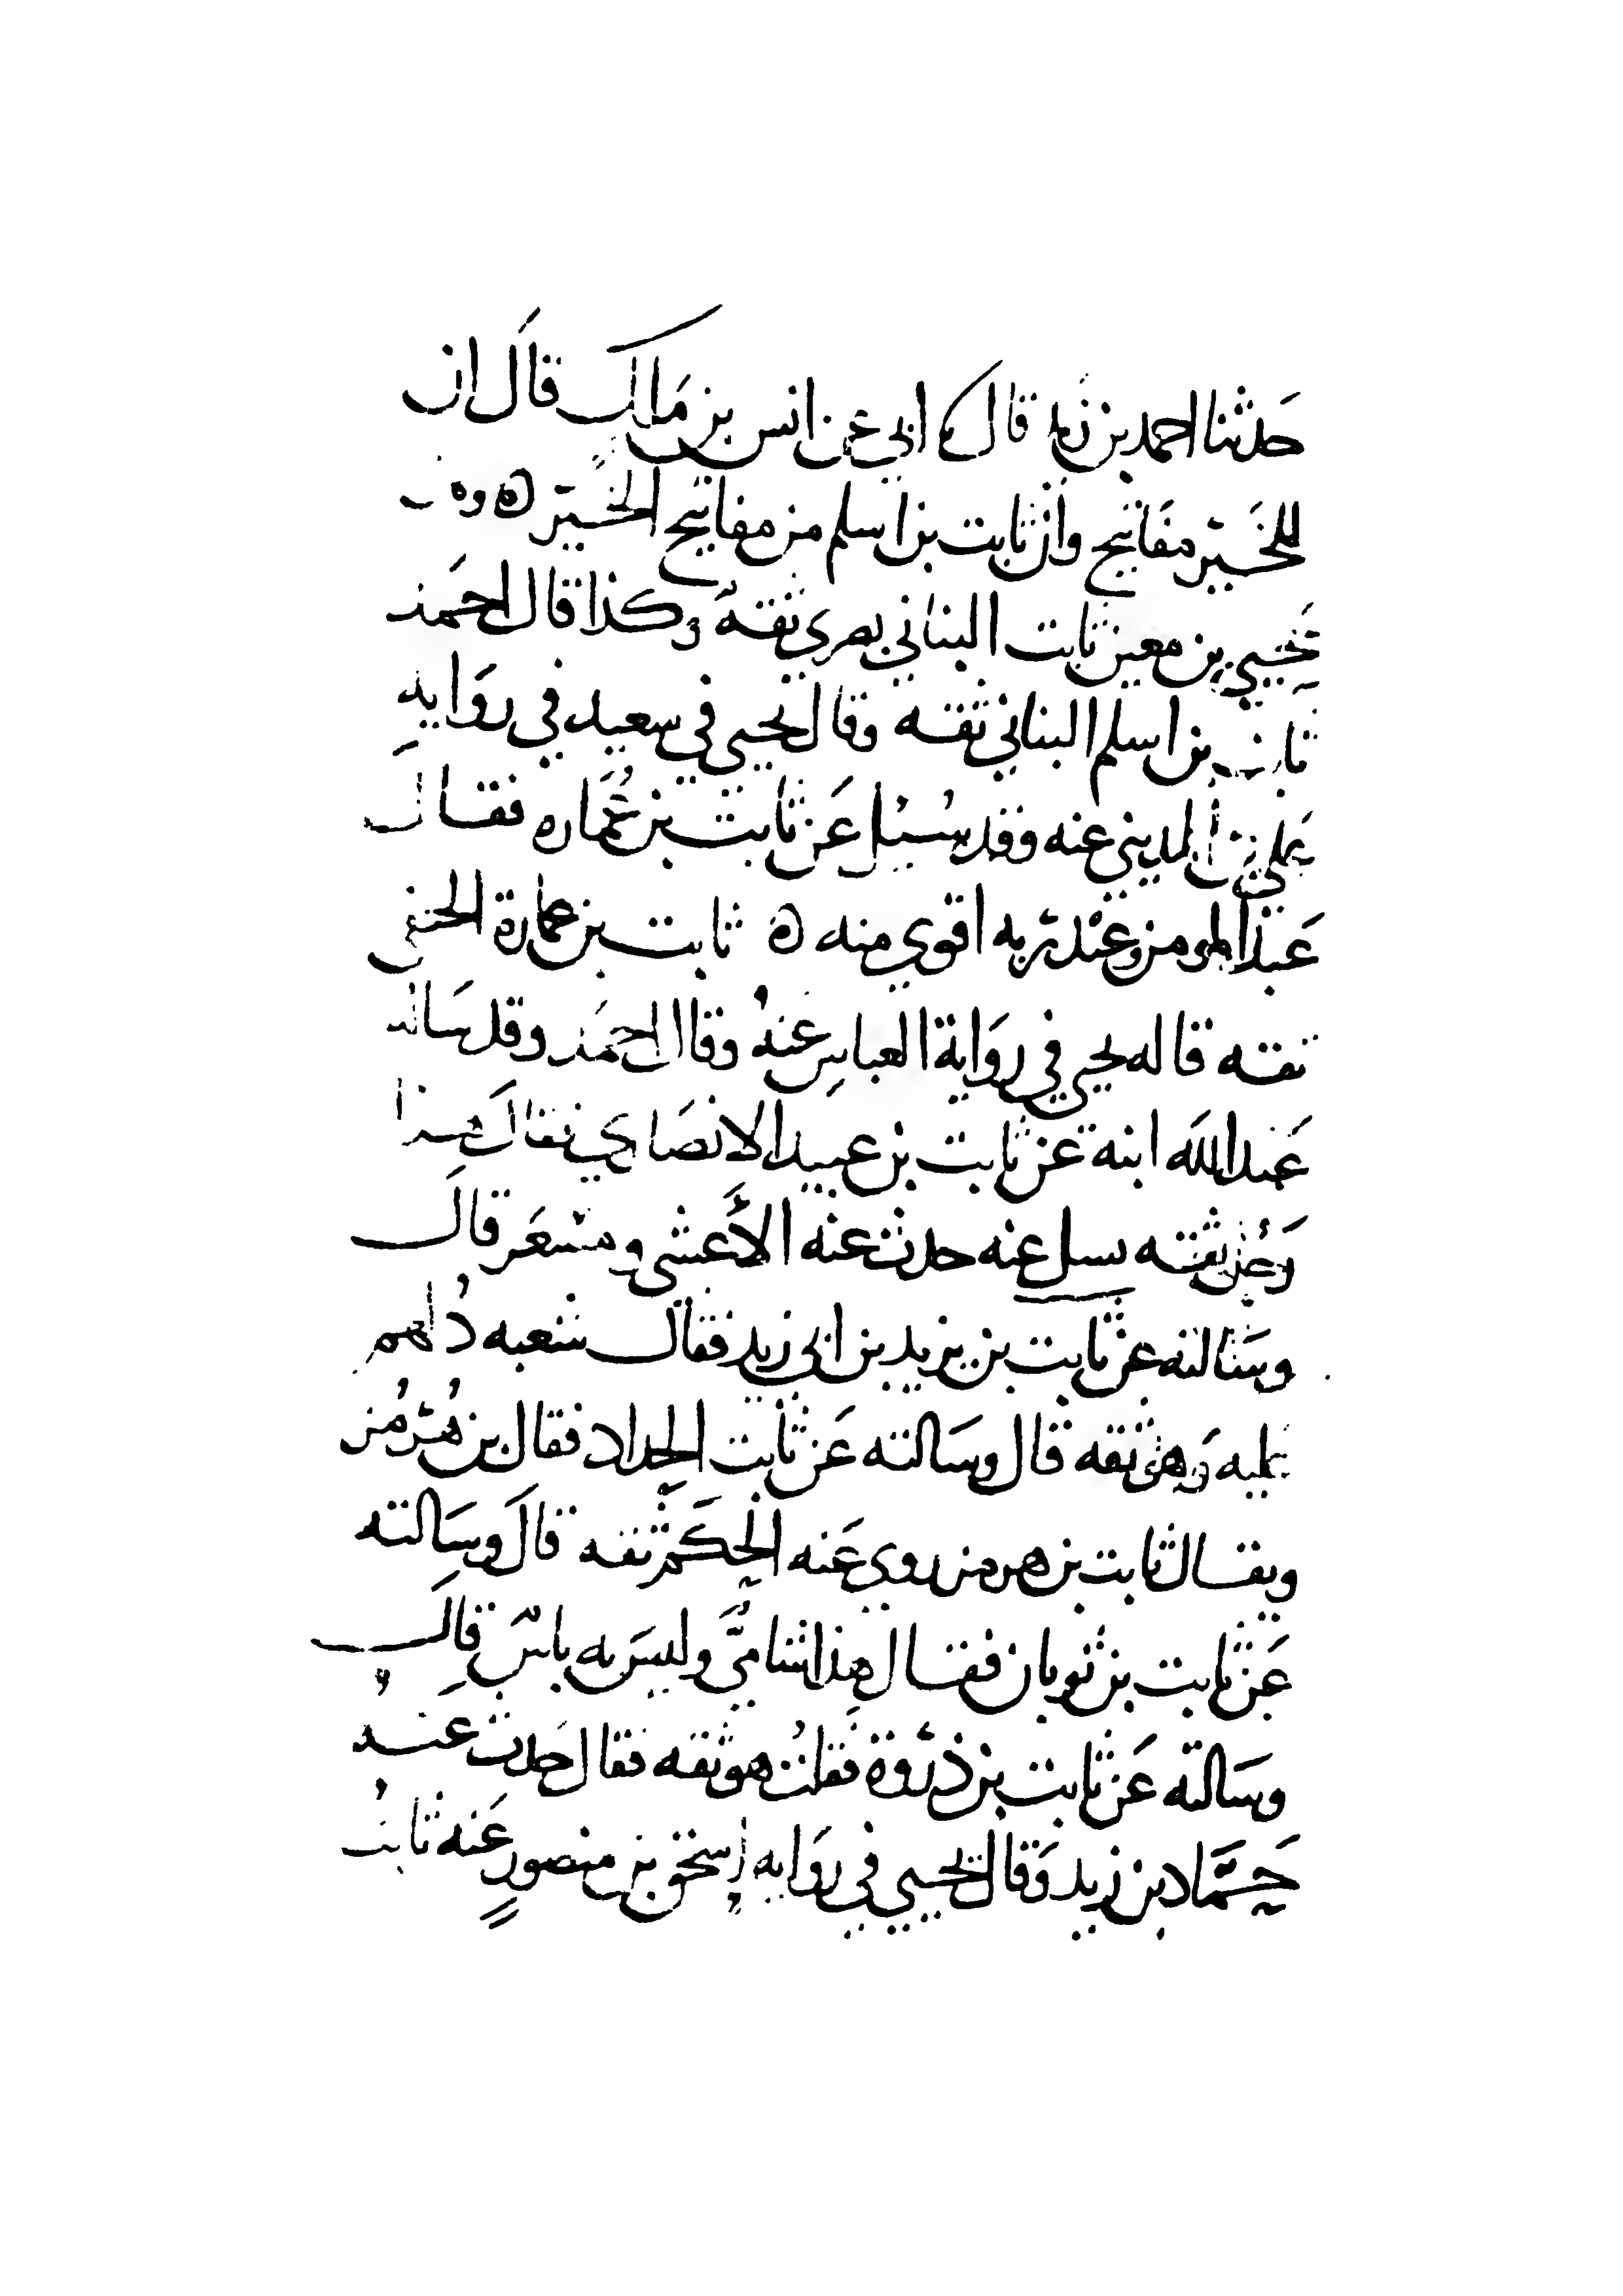 حدثنا احمد بن زيد قال ابي عن انس بن مالك قال ان
للخير مفاتيح وان ثابت بن اسلم من مفاتيح الخير
يحيي بن معين ثابت البناني بصري ثقة وكذا قال احمد
ثابت بن اسلم البناني ثقه وقال يحيى في سعيد في روايه
علي بن المديني عنه وقد سئل عن ثابت بن عماره فقال
عبد المومن وعبد ربه اقوي منه ثابت بن عمارة الحنفي
ثقه قاله يحيى في رواية العباس عنه وقال احمد وقد ساله
عبد الله ابنه عن ثابت بن عبيد الانصاري فقال هذا
ثقه يسل عنه حدث عنه الأعمش ومسعر قال
وسالته عن ثابت بن يزيد بن ابي زيد فقال شعبه دلهم
عليه وهو ثقه قال وسالته عن ثابت الحداد فقال بن هرمز
ويقال ثابت بن هرمز روي عنه الحكم ثقه قال وسالته
عن ثابت بن ثوبان فقال هذا شامي وليس به باس قال
وسالته عن ثابت بن ذروة فقلت هو ثقه فقال حدث عنه
حماد بن زيد وقال يحيي في روايه إسحق بن منصور عنه ثابت